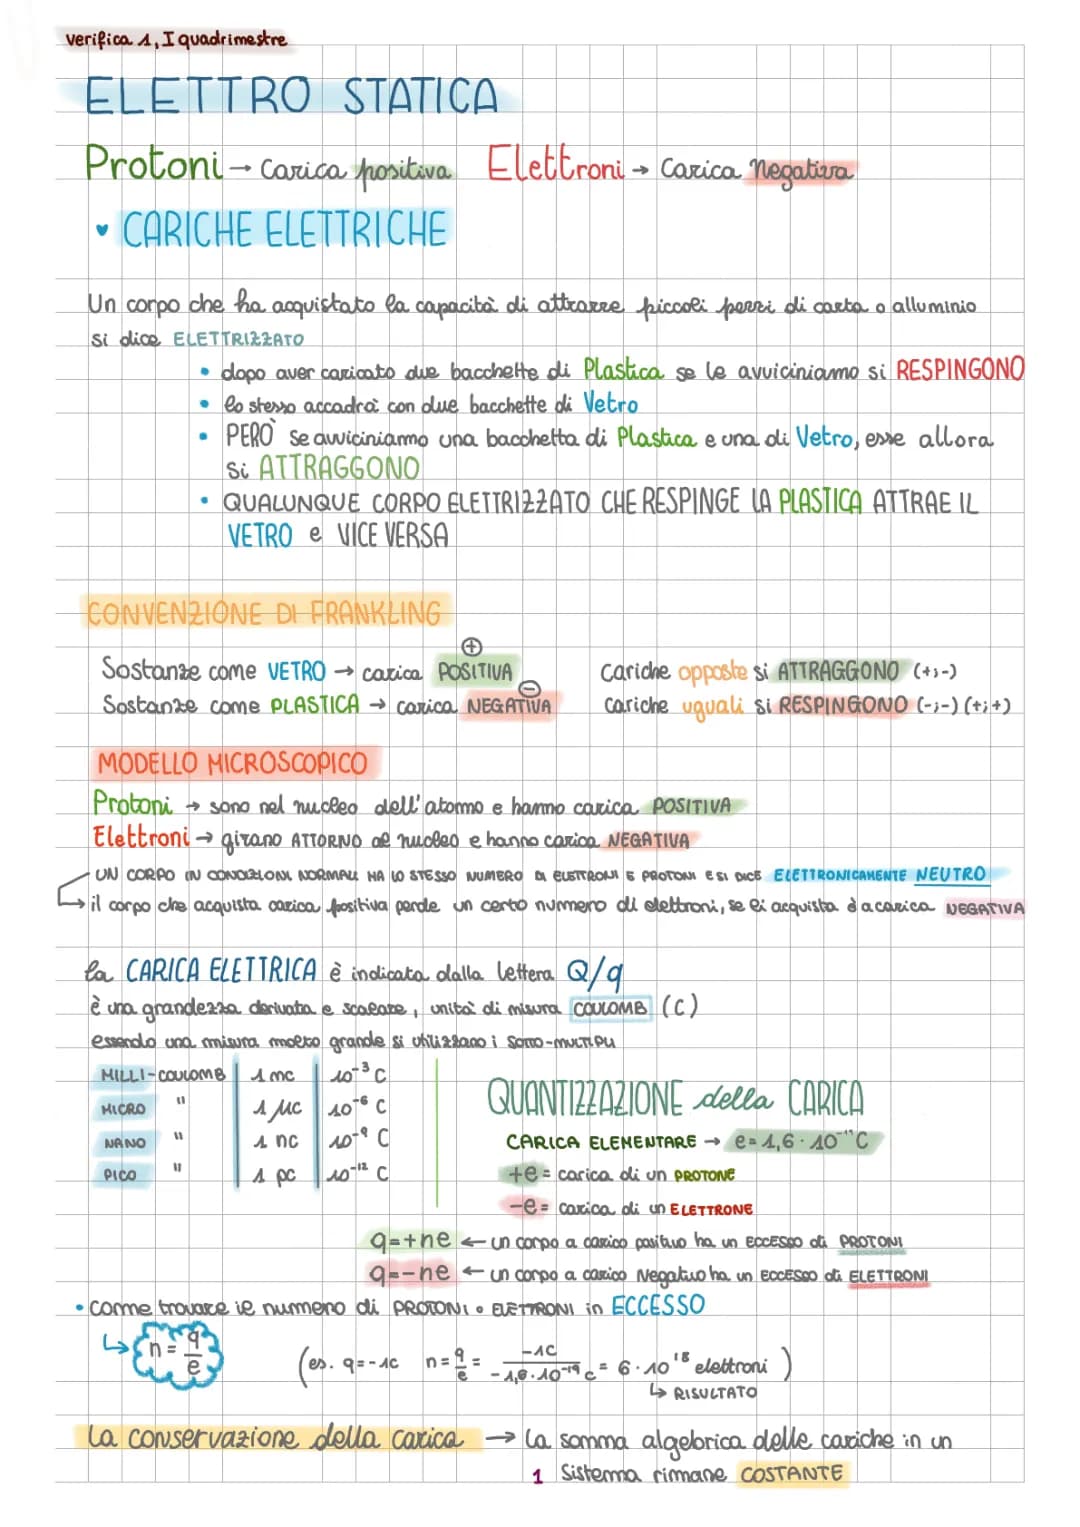 verifica 1, I quadrimestre
ELETTRO STATICA
Protoni → Carica positiva Elettroni → Carica Negativa
♥ CARICHE ELETTRICHE
Un corpo che ha acquistato la capacità di attrarre piccoli pezzi di carta o alluminio
si dice ELETTRIZZATO
• dopo aver caricato due bacchette di Plastica se le avviciniamo si RESPINGONO
• lo stesso accadrà con due bacchette di Vetro
• PERÒ se avviciniamo una bacchetta di Plastica e una di Vetro, esse allora
si ATTRAGGONO
• QUALUNQUE CORPO ELETTRIZZATO CHE RESPINGE LA PLASTICA ATTRAE IL
VETRO e VICE VERSA
CONVENZIONE DI FRANKLING
Sostanze come VETRO → carica POSITIVA ⊕
Sostanze come PLASTICA → carica NEGATIVA ⊖
Cariche opposte si ATTRAGGONO (+;-)
Cariche uguali si RESPINGONO (-;-) (+;+)
MODELLO MICROSCOPICO
Protoni → sono nel nucleo dell'atomo e hanno carica POSITIVA
Elettroni → girano ATTORNO al nucleo e hanno carica NEGATIVA
UN CORPO IN CONDIZIONI NORMALI HA LO STESSO NUMERO DI ELETTRONI E PROTONI E SI DICE ELETTRONICAMENTE NEUTRO
↳ il corpo che acquista carica positiva perde un certo numero di elettroni, se li acquista dà carica NEGATIVA
la CARICA ELETTRICA è indicata dalla lettera Q/q
è una grandezza derivata e scalare, unità di misura COULOMB (C)
essendo una misura molto grande si utilizzano i SOTTO-MULTIPLI
MILLI-COULOMB | 1 mc | 10⁻³ C
MICRO " | 1 μc | 10⁻⁶ C
NANO " | 1 nc | 10⁻⁹ C
PICO " | 1 pc | 10⁻¹² C
QUANTIZZAZIONE della CARICA
CARICA ELEMENTARE → e = 1,6 · 10⁻¹¹ C
+e = carica di un PROTONE
-e = carica di un ELETTRONE
q=+ne ← un corpo a carico positivo ha un ECCESSO di PROTONI
q=-ne ← un corpo a carico Negativo ha un ECCESSO di ELETTRONI
• come trovare il numero di PROTONI o ELETTRONI in ECCESSO
↳ n = q/e (es. q=-1C n = q/e = -1C/-1,6·10⁻¹⁹ C = 6·10¹⁸ elettroni)
↳ RISULTATO
La conservazione della carica → la somma algebrica delle cariche in un
1 Sistema rimane COSTANTE